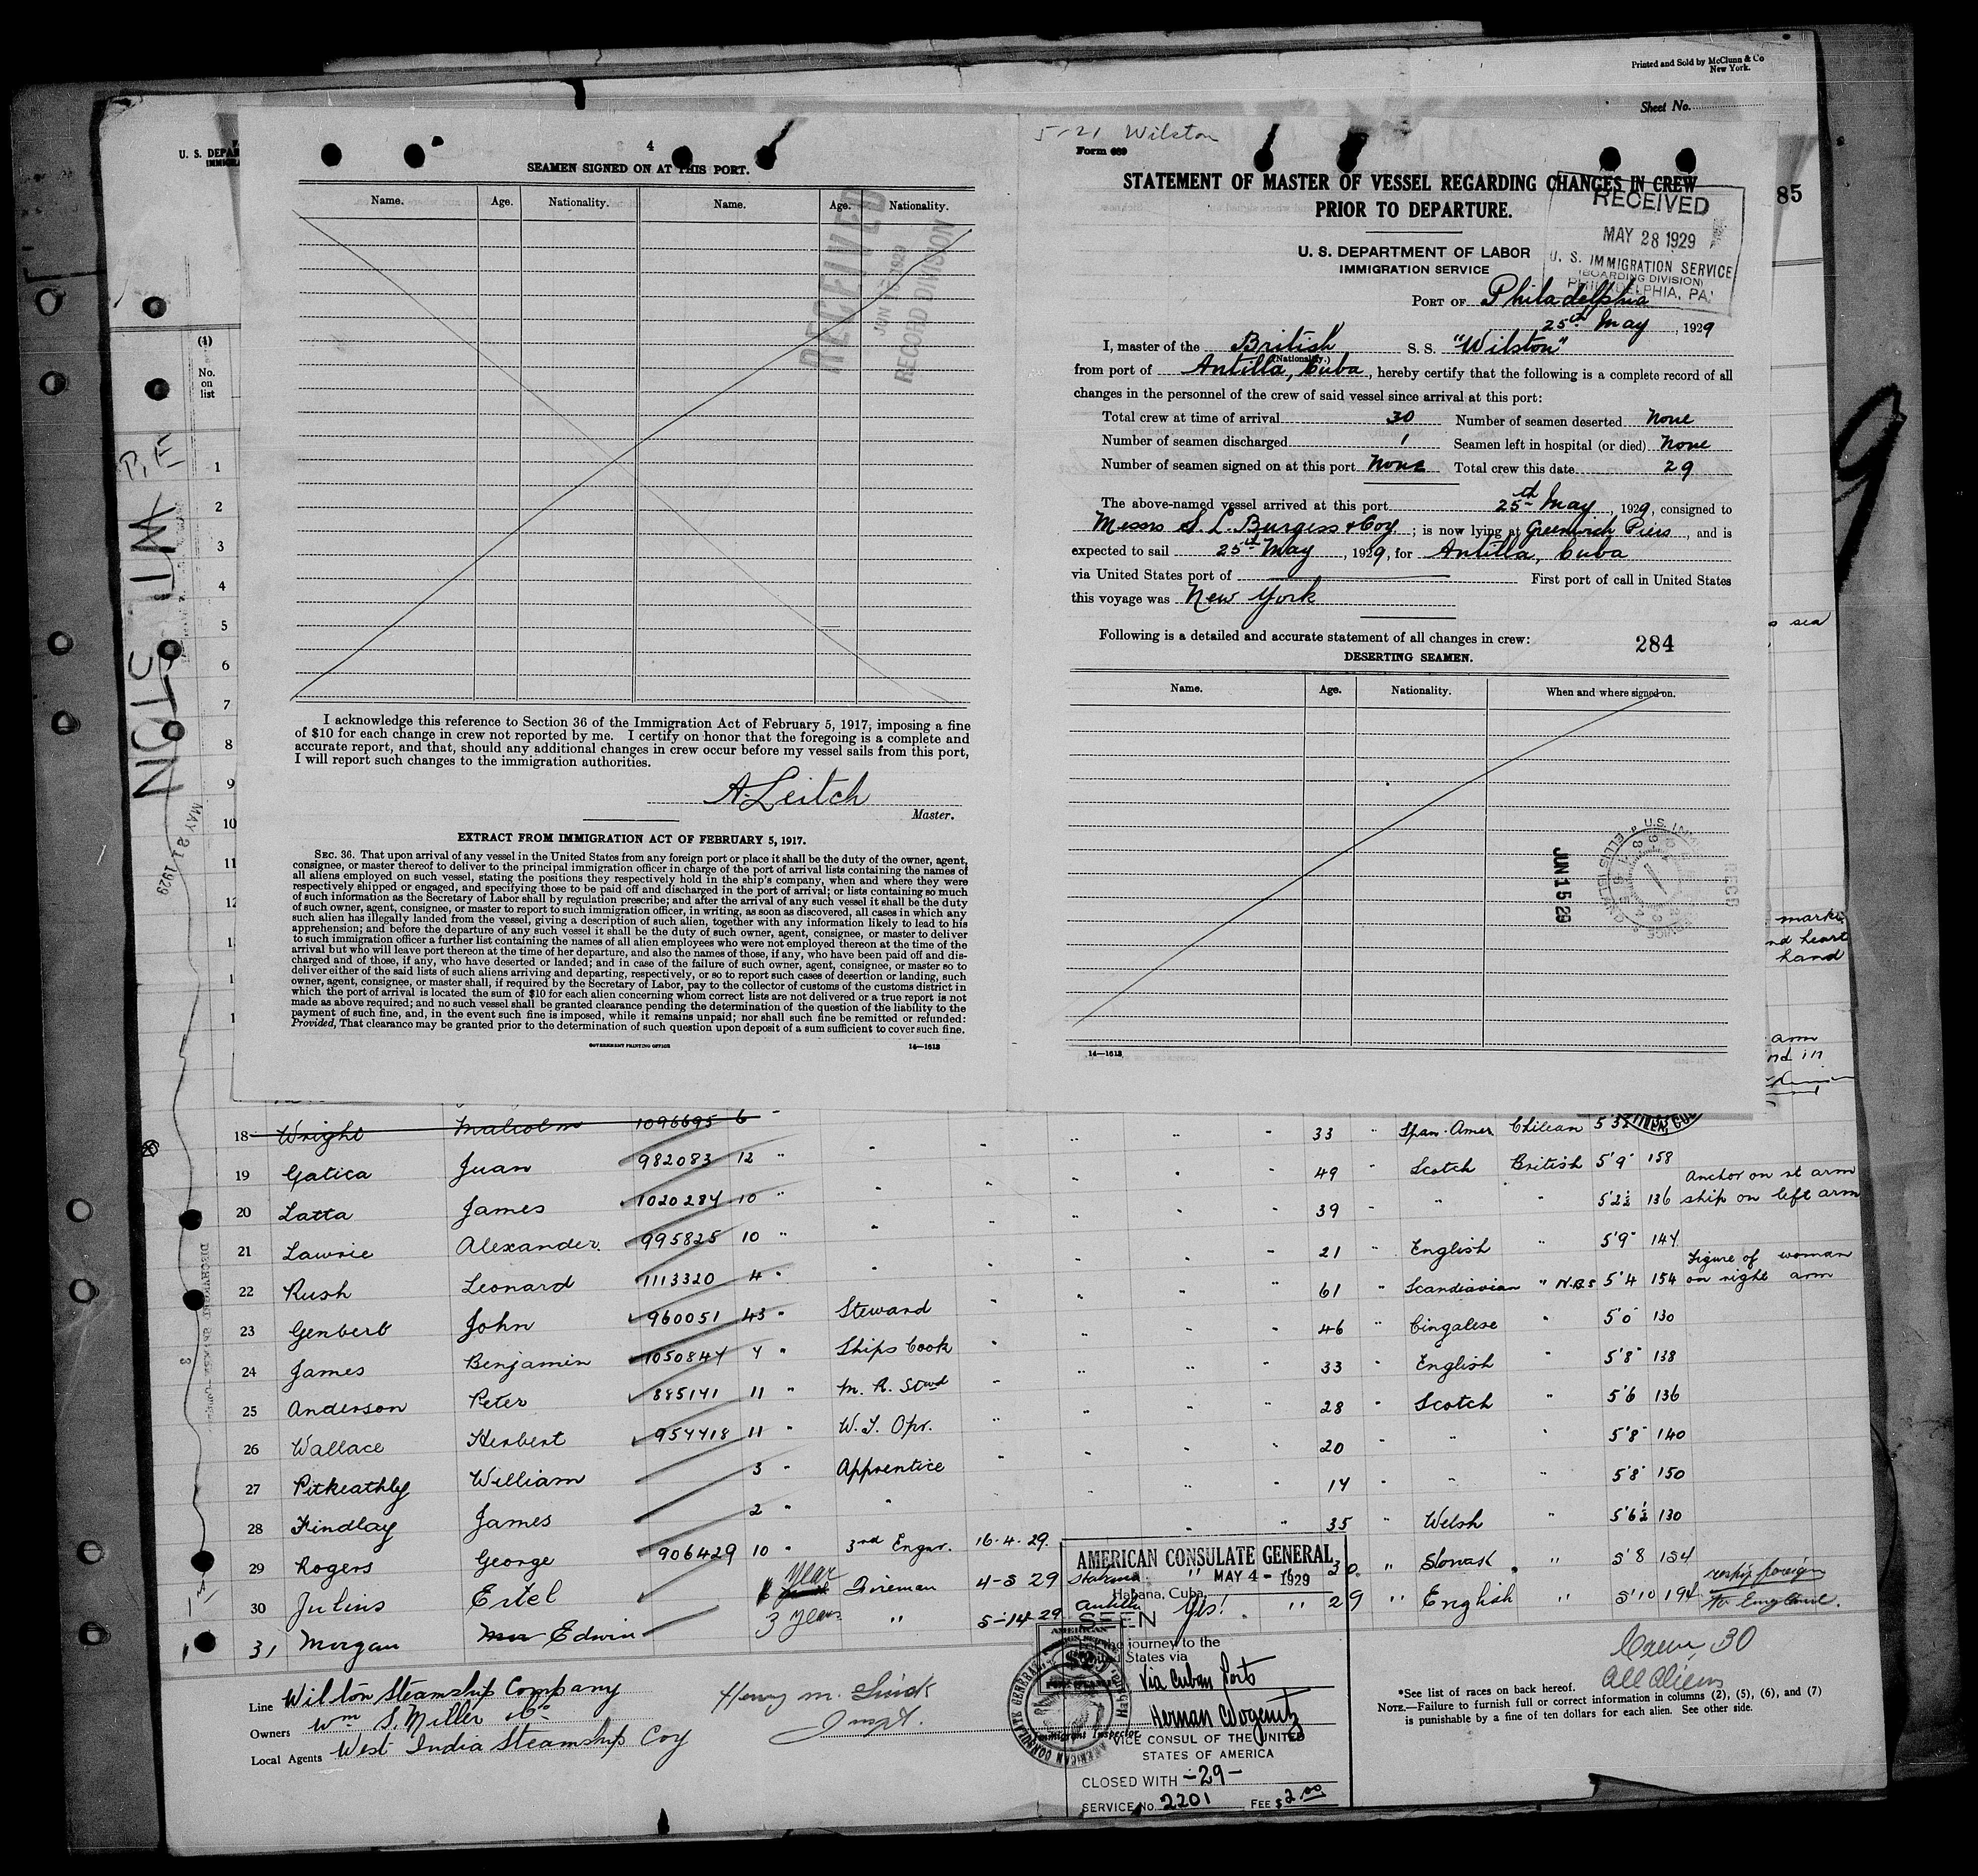 Printed and Sold by McClunn & Co
New York.
Sheet No.
85
U. S. DEPAR
IMMIGRA
(4)
No.
on
list
P, E
WILSTON
MAY 21 1929
1
2
3
4
5
6
7
8
9
10
11
4
SEAMEN SIGNED ON AT THIS PORT.
Name. Age. Nationality. Name. Age. Nationality.
RECEIVED
JUN 1929
RECORD DIVISION
I acknowledge this reference to Section 36 of the Immigration Act of February 5, 1917, imposing a fine
of $10 for each change in crew not reported by me. I certify on honor that the foregoing is a complete and
accurate report, and that, should any additional changes in crew occur before my vessel sails from this port,
I will report such changes to the immigration authorities.
A. Leitch
Master.
EXTRACT FROM IMMIGRATION ACT OF FEBRUARY 5, 1917.
SEC. 36. That upon arrival of any vessel in the United States from any foreign port or place it shall be the duty of the owner, agent,
consignee, or master thereof to deliver to the principal immigration officer in charge of the port of arrival lists containing the names of
all aliens employed on such vessel, stating the positions they respectively hold in the ship's company, when and where they were
respectively shipped or engaged, and specifying those to be paid off and discharged in the port of arrival; or lists containing so much
of such information as the Secretary of Labor shall by regulation prescribe; and after the arrival of any such vessel it shall be the duty
of such owner, agent, consignee, or master to report to such immigration officer, in writing, as soon as discovered, all cases in which any
such alien has illegally landed from the vessel, giving a description of such alien, together with any information likely to lead to his
apprehension; and before the departure of any such vessel it shall be the duty of such owner, agent, consignee, or master to deliver
to such immigration officer a further list containing the names of all alien employees who were not employed thereon at the time of the
arrival but who will leave port thereon at the time of her departure, and also the names of those, if any, who have been paid off and dis-
charged and of those, if any, who have deserted or landed; and in case of the failure of such owner, agent, consignee, or master so to
deliver either of the said lists of such aliens arriving and departing, respectively, or so to report such cases of desertion or landing, such
owner, agent, consignee, or master shall, if required by the Secretary of Labor, pay to the collector of customs of the customs district in
which the port of arrival is located the sum of $10 for each alien concerning whom correct lists are not delivered or a true report is not
made as above required; and no such vessel shall be granted clearance pending the determination of the question of the liability to the
payment of such fine, and, in the event such fine is imposed, while it remains unpaid; nor shall such fine be remitted or refunded:
Provided, That clearance may be granted prior to the determination of such question upon deposit of a sum sufficient to cover such fine.
GOVERNMENT PRINTING OFFICE 14—1613
5/21 Wilston
Form 689
STATEMENT OF MASTER OF VESSEL REGARDING CHANGES IN CREW
PRIOR TO DEPARTURE.
RECEIVED
MAY 28 1929
U. S. IMMIGRATION SERVICE
(BOARDING DIVISION)
PHILADELPHIA, PA.
U. S. DEPARTMENT OF LABOR
IMMIGRATION SERVICE
PORT OF Philadelphia
25th May, 1929
I, master of the British S. S. "Wilston"
(Nationality.)
from port of Antilla, Cuba, hereby certify that the following is a complete record of all
changes in the personnel of the crew of said vessel since arrival at this port:
Total crew at time of arrival 30 Number of seamen deserted None
Number of seamen discharged 1 Seamen left in hospital (or died) None
Number of seamen signed on at this port None Total crew this date 29
The above-named vessel arrived at this port 25th May, 1929, consigned to
Messrs S. L. Burgess & Coy; is now lying at Greenwich Piers, and is
expected to sail 25th May, 1929, for Antilla, Cuba
via United States port of First port of call in United States
this voyage was New York
Following is a detailed and accurate statement of all changes in crew:
284
DESERTING SEAMEN.
Name. Age. Nationality. When and where signed on.
JUN 15 29
14—1613
sea
marks
nd heart
hand
arm
nd in
18 Wright Malcolm 1096695 6 " 33 " Span. Amer Chilean 5'3
19 Gatica Juan 982083 12 " " " " " " 49 " Scotch British 5'9" 158
20 Latta James 1020284 10 " " " " " " 39 " " " 5'2½ 136 Anchor on rt arm ship on left arm
21 Lawrie Alexander. 995825 10 " " " " " " 21 " English " 5'9" 147
22 Rush Leonard 1113320 4 " " " " " " 61 " Scandiavian " N.B.S 5'4 154 Figure of woman on right arm
23 Genberb John 960051 43 " Steward " " " " 46 " Cingalese " 5'0" 130
24 James Benjamin 1050847 4 " Ships Cook " " " " 33 " English " 5'8" 138
25 Anderson Peter 885141 11 " M. R. Stwd " " " " 28 " Scotch " 5'6 136
26 Wallace Herbert 954418 11 " W. T. Opr. " " " " 20 " " " 5'8" 140
27 Pitkeathly William 3 " Apprentice " " " " 14 " " " 5'8" 150
28 Findlay James 2 " " " " 35 " Welsh " 5'6½ 130
29 Rogers George 906429 10 " 3rd Engnr. 16.4.29. 30 " Slovak " " 5'8 154
30 Julius Estel year Fireman 4-3 29 Habana " " 29 " English " 5'10 194 reship foreign
31 Morgan Edwin 3 years " 5-14-29 Antilla Yes! " to England.
AMERICAN CONSULATE GENERAL
MAY 4 - 1929
Habana, Cuba.
SEEN
For the journey to the
United States via
Via Cuban Ports
VICE CONSUL OF THE UNITED
STATES OF AMERICA
CLOSED WITH -29-
SERVICE No. 2201 FEE $ 2.00
Immigrant Inspector.
Line Wilston Steamship Company
Owners Wm S. Miller & Co
Local Agents West India Steamship Coy
Crew, 30
All Aliens
*See list of races on back hereof.
NOTE.—Failure to furnish full or correct information in columns (2), (5), (6), and (7)
is punishable by a fine of ten dollars for each alien. See other side.